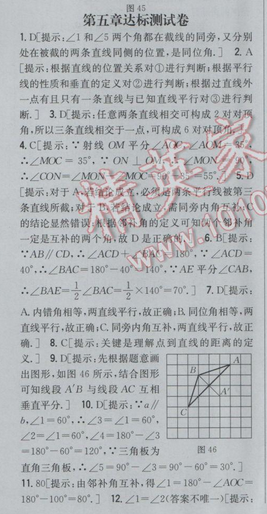 图 45
第五章达标测试卷
1. D[提示:∠1 和∠5 两个角都在截线的同旁,又分别
处在被截的两条直线同侧的位置,是同位角.] 2. A
[提示:根据直线的位置关系对①进行判断;根据平行
线的性质和垂直的定义对②进行判断;根据过直线外
一点有且只有一条直线与已知直线平行对③进行判
断.] 3. D[提示:任意两条直线相交可构成 2 对对顶
角,所以三条直线相交于一点,可构成 6 对对顶角.]
4. C[提示:∵射线 OM 平分
∴∠MOC = 35°, ∵ ON ⊥
∴∠CON = ∠MON − ∠MOC
示:对于 A
条直线所截,对于
的结论显然错误,根据邻补角的定义可知两个邻补角
一定是互补的两个角,故 D 是正确的.] 6. B[提示:
∵AB // CD, ∴∠ACD + ∠BAC = 180°. ∵∠ACD =
40°, ∴∠BAC = 180° − 40° = 140°. ∵AE 平分∠CAB,
∴∠BAE = 1/2 ∠BAC = 1/2 × 140° = 70°.] 7. D[提示:
A. 内错角相等,两直线平行,故正确;B. 同位角相等,两
直线平行,故正确;C. 同旁内角互补,两直线平行,故正
确.] 8. C[提示:关键是理解点到直线的距离的定
义.] 9. D[提示:先根据题意画
出图形,如图 46 所示,结合图形
可知线段 A′B 与线段 AC 互相
垂直平分.] 10. D[提示:∵a //
b, ∠1 = 60°, ∴∠3 = ∠1 = 60°,
∠2 = ∠1 = 60°, ∠4 = 180° − ∠3
= 180° − 60° = 120°, ∵三角板为
直角三角板,∴∠5 = 90° − ∠3 = 90° − 60° = 30°.]
A
B
A′
C
图 46
11. 80[提示:由邻补角互补,得∠1 = 180° − ∠AOC =
180° − 100° = 80°.] 12. ∠1 = ∠2(答案不唯一)[提示: